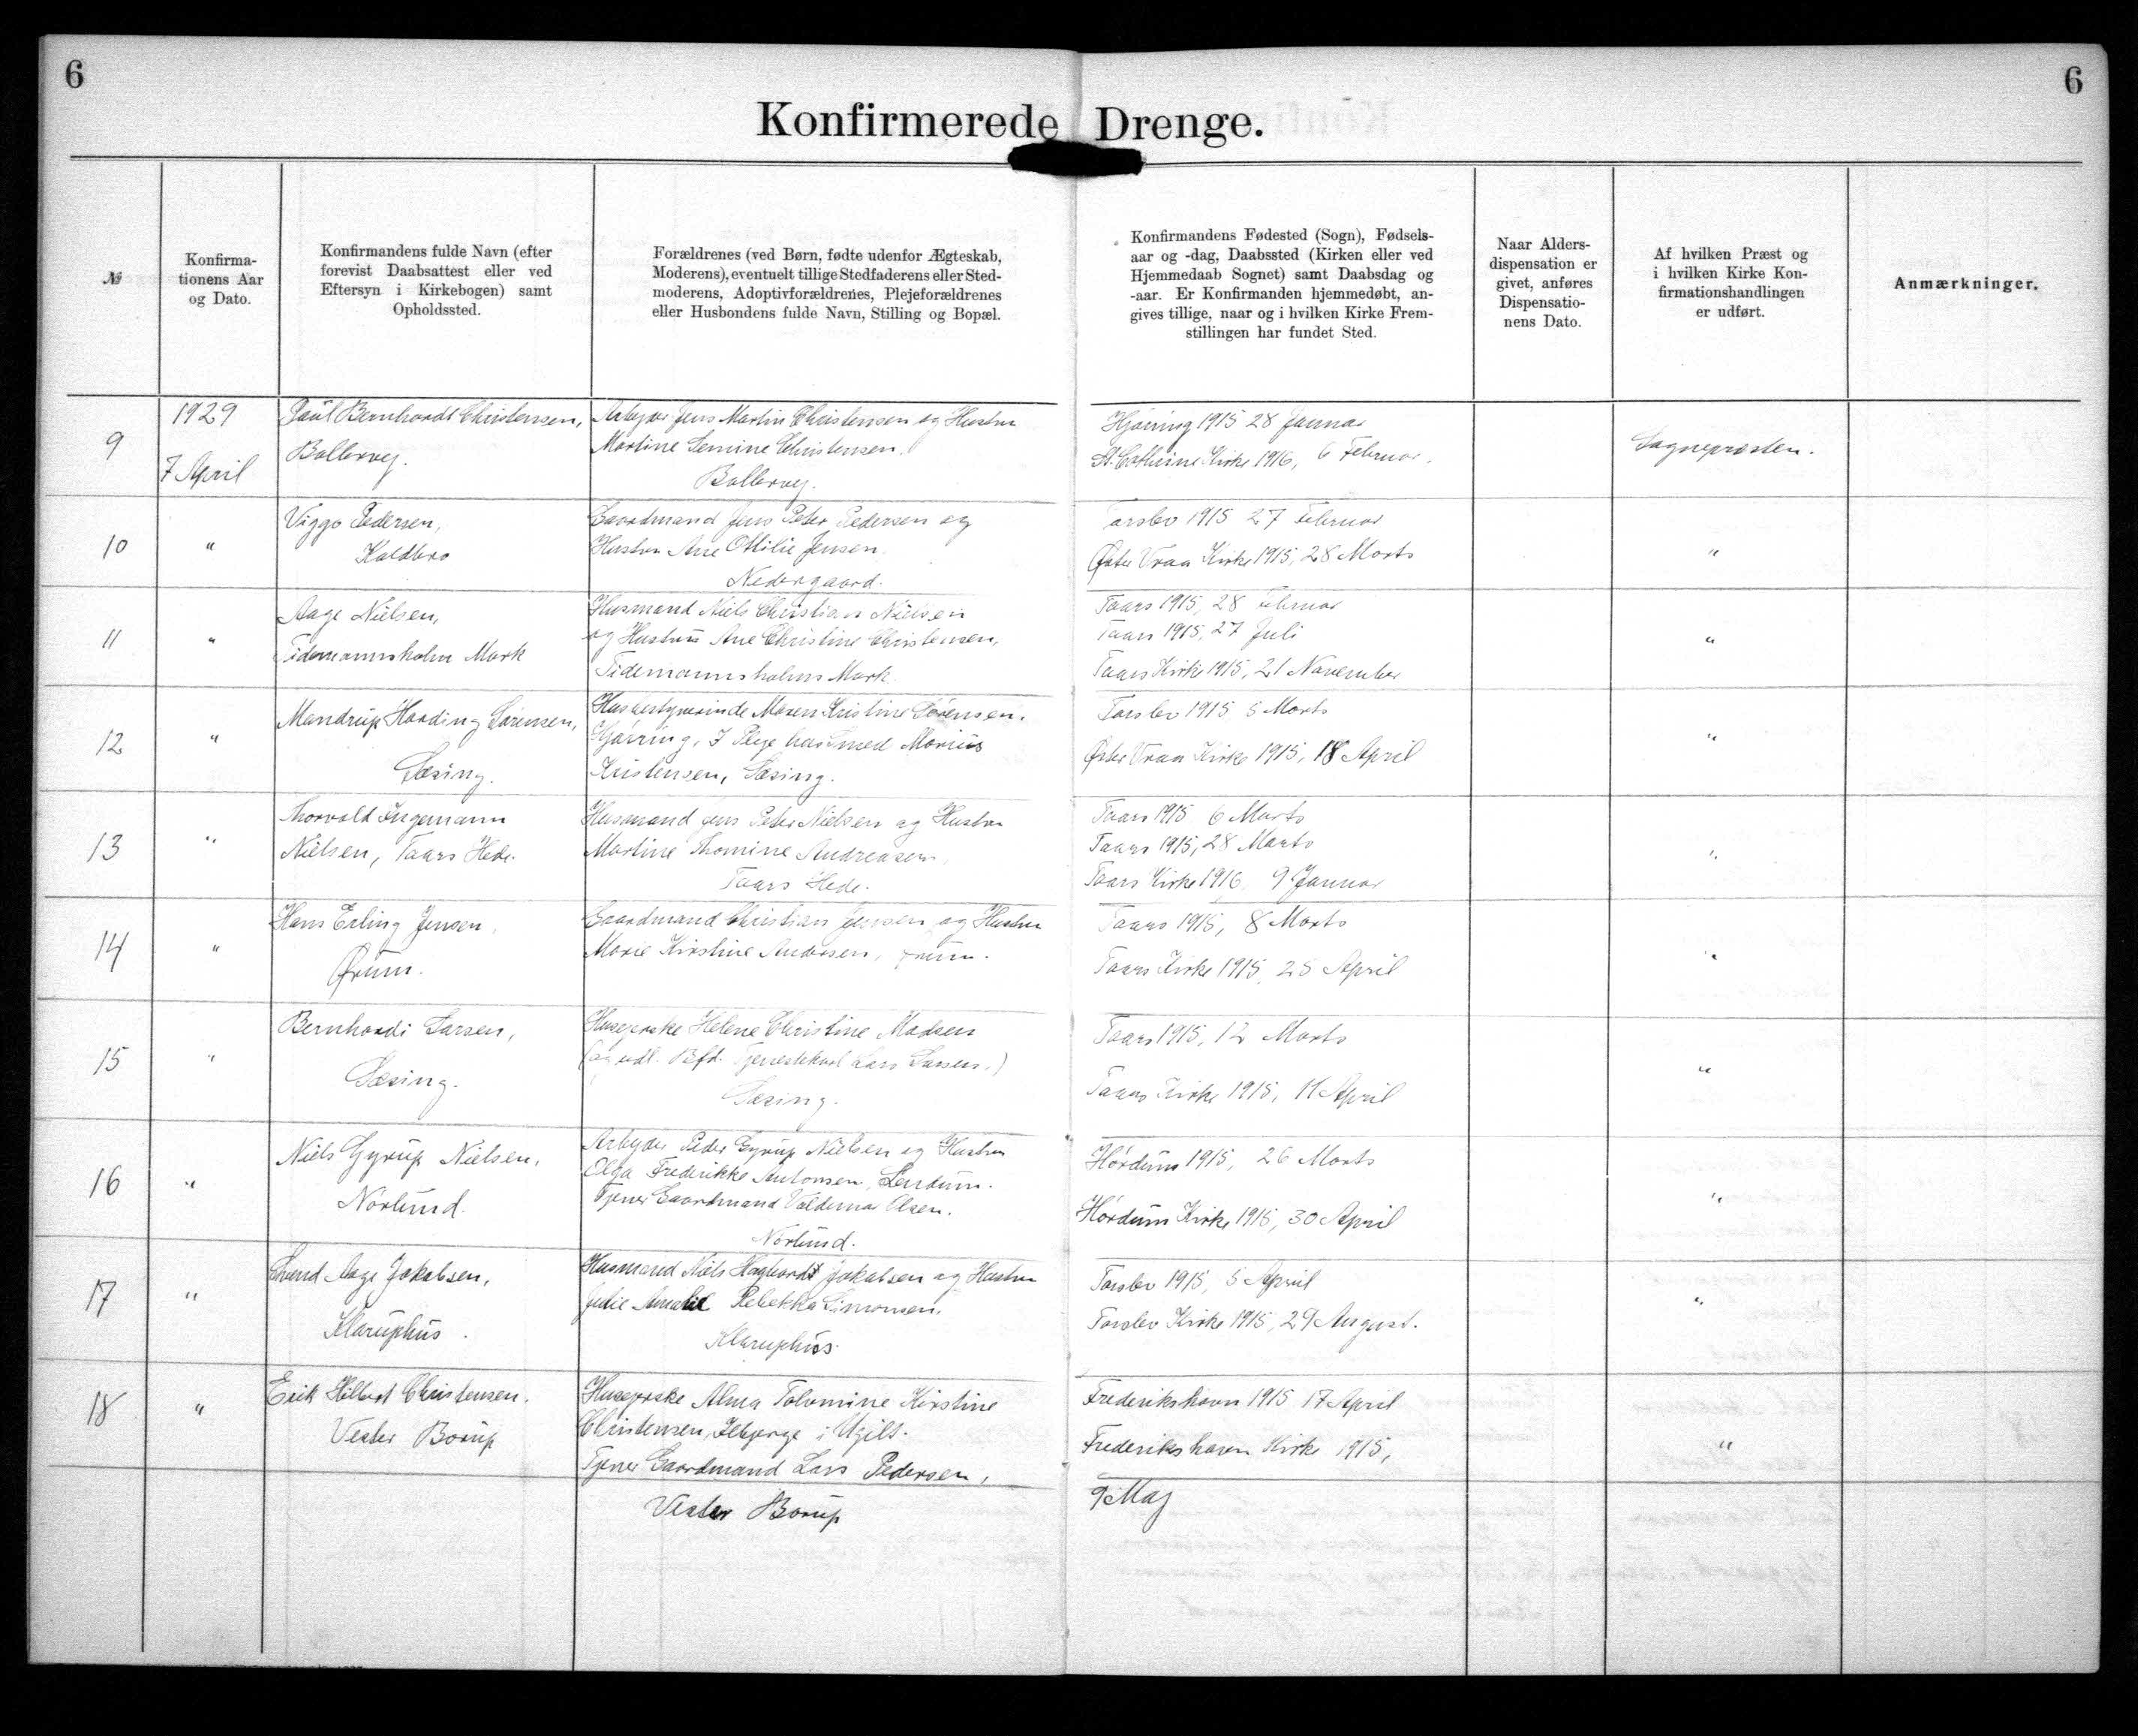 6
6
Konfirmerede Drenge.
№
Konfirma-
tionens Aar
og Dato.
Konfirmandens fulde Navn (efter
forevist Daabsattest eller ved
Eftersyn i Kirkebogen) samt
Opholdssted.
Forældrenes (ved Børn, fødte udenfor Ægteskab,
Moderens), eventuelt tillige Stedfaderens eller Sted-
moderens, Adoptivforældrenes, Plejeforældrenes
eller Husbondens fulde Navn, Stilling og Bopæl.
Konfirmandens Fødested (Sogn), Fødsels-
aar og -dag, Daabssted (Kirken eller ved
Hjemmedaab Sognet) samt Daabsdag og
-aar. Er Konfirmanden hjemmedøbt, an-
gives tillige, naar og i hvilken Kirke Frem-
stillingen har fundet Sted.
Naar Alders-
dispensation er
givet, anføres
Dispensatio-
nens Dato.
Af hvilken Præst og
i hvilken Kirke Kon-
firmationshandlingen
er udført.
Anmærkninger.
9
1929
7 April
Paul Bernhardt Christensen,
Bollervej.
Arbejder Jens Martin Christensen og Hustru
Martine Semine Christensen.
Bollervej.
Hjørring 1915 28 Januar
St. Cathrine Kirke 1916, 6 Februar.
Sognepræsten.
10
"
Viggo Pedersen,
Kaldbro
Gaardmand Jens Peter Pedersen og
Hustru Ane Ottilie Jensen
Nedergaard.
Torslev 1915 27 Februar
Øster Vraa Kirke 1915, 28 Marts
"
11
"
Aage Nielsen,
Tidemannsholm Mark
Husmand Niels Christian Nielsen
og Hustru Ane Christine Christensen,
Tidemannsholms Mark.
Taars 1915, 28 Februar
Taars 1915, 27 Juli
Taars Kirke 1915, 21 November
"
12
"
Mandrup Harding Sørensen,
Sæsing.
Husbestyrerinde Maren Kristine Sørensen.
Hjørring, I Pleje hos Smed Marius
Kristensen, Sæsing.
Torslev 1915 5 Marts
Øster Vraa Kirke 1915, 18 April
"
13
"
Thorvald Ingemann
Nielsen, Taars Hede.
Husmand Jens Peter Nielsen og Hustru
Martine Thomine Andreasen,
Taars Hede.
Taars 1915 6 Marts
Taars 1915, 28 Marts
Taars Kirke 1916, 9 Januar
"
14
"
Hans Erling Jensen,
Ørum.
Gaardmand Christian Jensen og Hustru
Marie Kirstine Andersen, Ørum.
Taars 1915, 8 Marts
Taars Kirke 1915, 25 April
"
15
"
Bernhardi Larsen,
Sæsing.
Husejerske Helene Christine Madsen
(og udl. Bfd. Tjenestekarl Lars Larsen.)
Sæsing.
Taars 1915, 12 Marts
Taars Kirke 1915, 11 April
"
16
"
Niels Gyrup Nielsen,
Nørlund.
Arbejder Peder Gyrup Nielsen og Hustru
Olga Frederikke Antonsen, Lendum.
Tjener Gaardmand Valdemar Olsen.
Nørlund.
Hørdum 1915, 26 Marts
Hørdum Kirke 1915, 30 April
"
17
"
Svend Aage Jakobsen,
Klaruphus.
Husmand Niels Hagbardt Jakobsen og Hustru
Julie Amalie Rebekka Simonsen.
Klaruphus.
Torslev 1915, 5 April
Torslev Kirke 1915, 29 August.
"
18
"
Erik Hilbert Christensen.
Vester Borup
Husejerske Alma Tolomine Kirstine
Christensen, Ilbjerge i Ugilt.
Tjener Gaardmand Lars Pedersen,
Vester Borup
Frederikshavn 1915 17 April
Frederikshavn Kirke 1915,
9 Maj
"